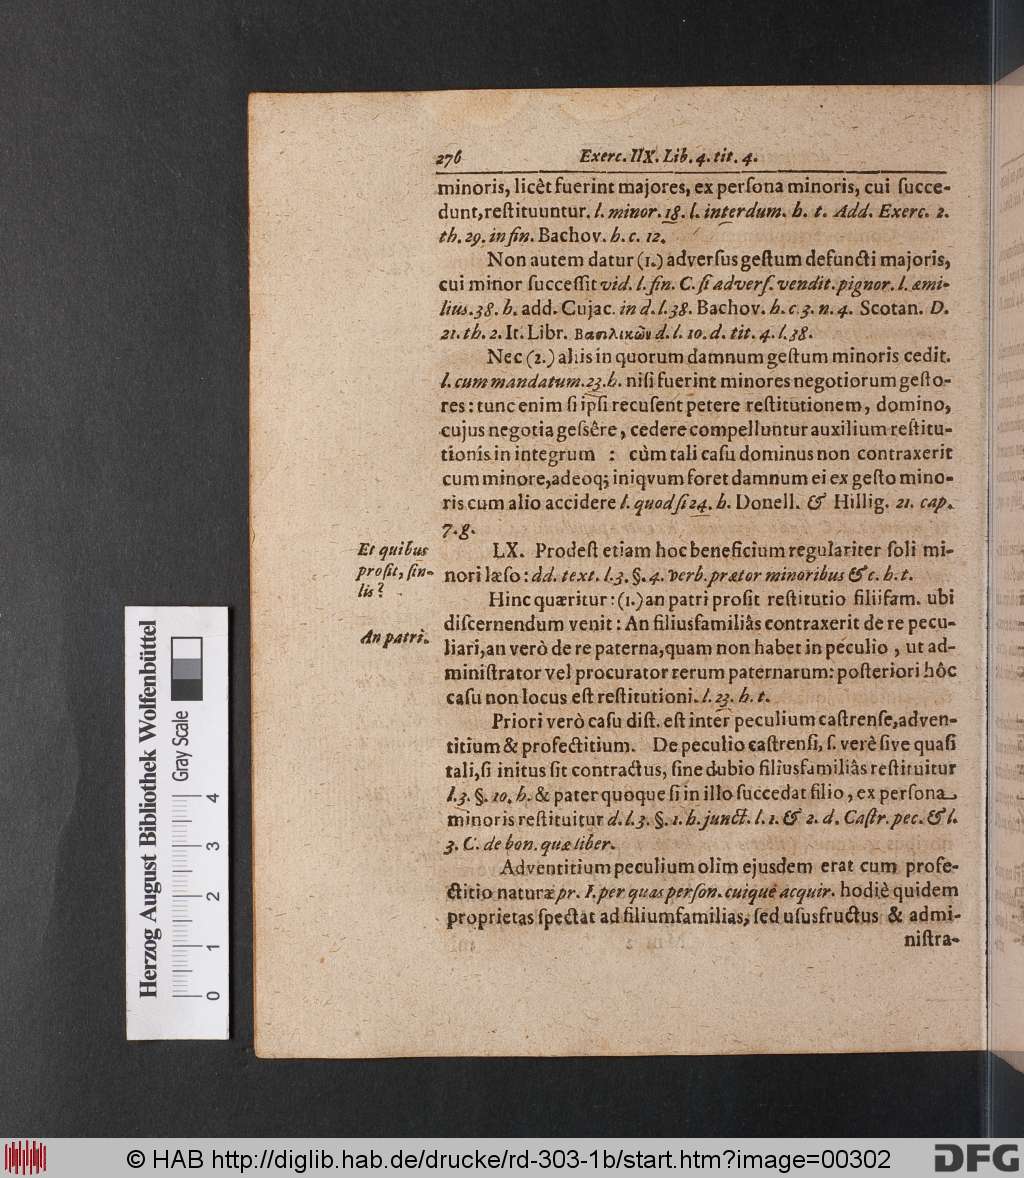 276 Exerc. IIX. Lib. 4. tit. 4.
minoris, licêt fuerint majores, ex persona minoris, cui succe-
dunt, restituuntur. l. minor. 18. l. interdum. h. t. Add. Exerc. 2.
th. 29. in fin. Bachov. h. c. 12.
Non autem datur (1.) adversus gestum defuncti majoris,
cui minor successit vid. l. fin. C. si advers. vendit. pignor. l. æmi-
lius. 38. h. add. Cujac. in d. l. 38. Bachov. h. c. 3. n. 4. Scotan. D.
21. th. 2. It. Libr. Βασιλικῶν d. l. 10. d. tit. 4. l. 38.
Nec (2.) aliis in quorum damnum gestum minoris cedit.
l. cum mandatum. 23. h. nisi fuerint minores negotiorum gesto-
res: tunc enim si ipsi recusent petere restitutionem, domino,
cujus negotia gessêre, cedere compelluntur auxilium restitu-
tionis in integrum : cùm tali casu dominus non contraxerit
cum minore, adeoq; iniqvum foret damnum ei ex gesto mino-
ris cum alio accidere l. quod si 24. h. Donell. & Hillig. 21. cap.
7. g.
Et quibus
prosit, sin-
lis?
LX. Prodest etiam hoc beneficium regulariter soli mi-
nori læso: dd. text. l. 3. §. 4. verb. prætor minoribus & c. h. t.
An patri.
Hinc quæritur: (1.) an patri prosit restitutio filiifam. ubi
discernendum venit: An filiusfamiliâs contraxerit de re pecu-
liari, an verò de re paterna, quam non habet in peculio, ut ad-
ministrator vel procurator rerum paternarum: posteriori hôc
casu non locus est restitutioni. l. 23. h. t.
Priori verò casu dist. est inter peculium castrense, adven-
titium & profectitium. De peculio castrensi, s. verè sive quasi
tali, si initus sit contractus, sine dubio filiusfamiliâs restituitur
l. 3. §. 10. h. & pater quoque si in illo succedat filio, ex persona
minoris restituitur d. l. 3. §. 1. h. junct. l. 1. & 2. d. Castr. pec. & l.
3. C. de bon. quæ liber.
Adventitium peculium olim ejusdem erat cum profe-
ctitio naturæ pr. I. per quas person. cuique acquir. hodiè quidem
proprietas spectat ad filiumfamilias, sed ususfructus & admi-
nistra-
Herzog August Bibliothek Wolfenbüttel
Gray Scale
0 1 2 3 4
© HAB http://diglib.hab.de/drucke/rd-303-1b/start.htm?image=00302
DFG